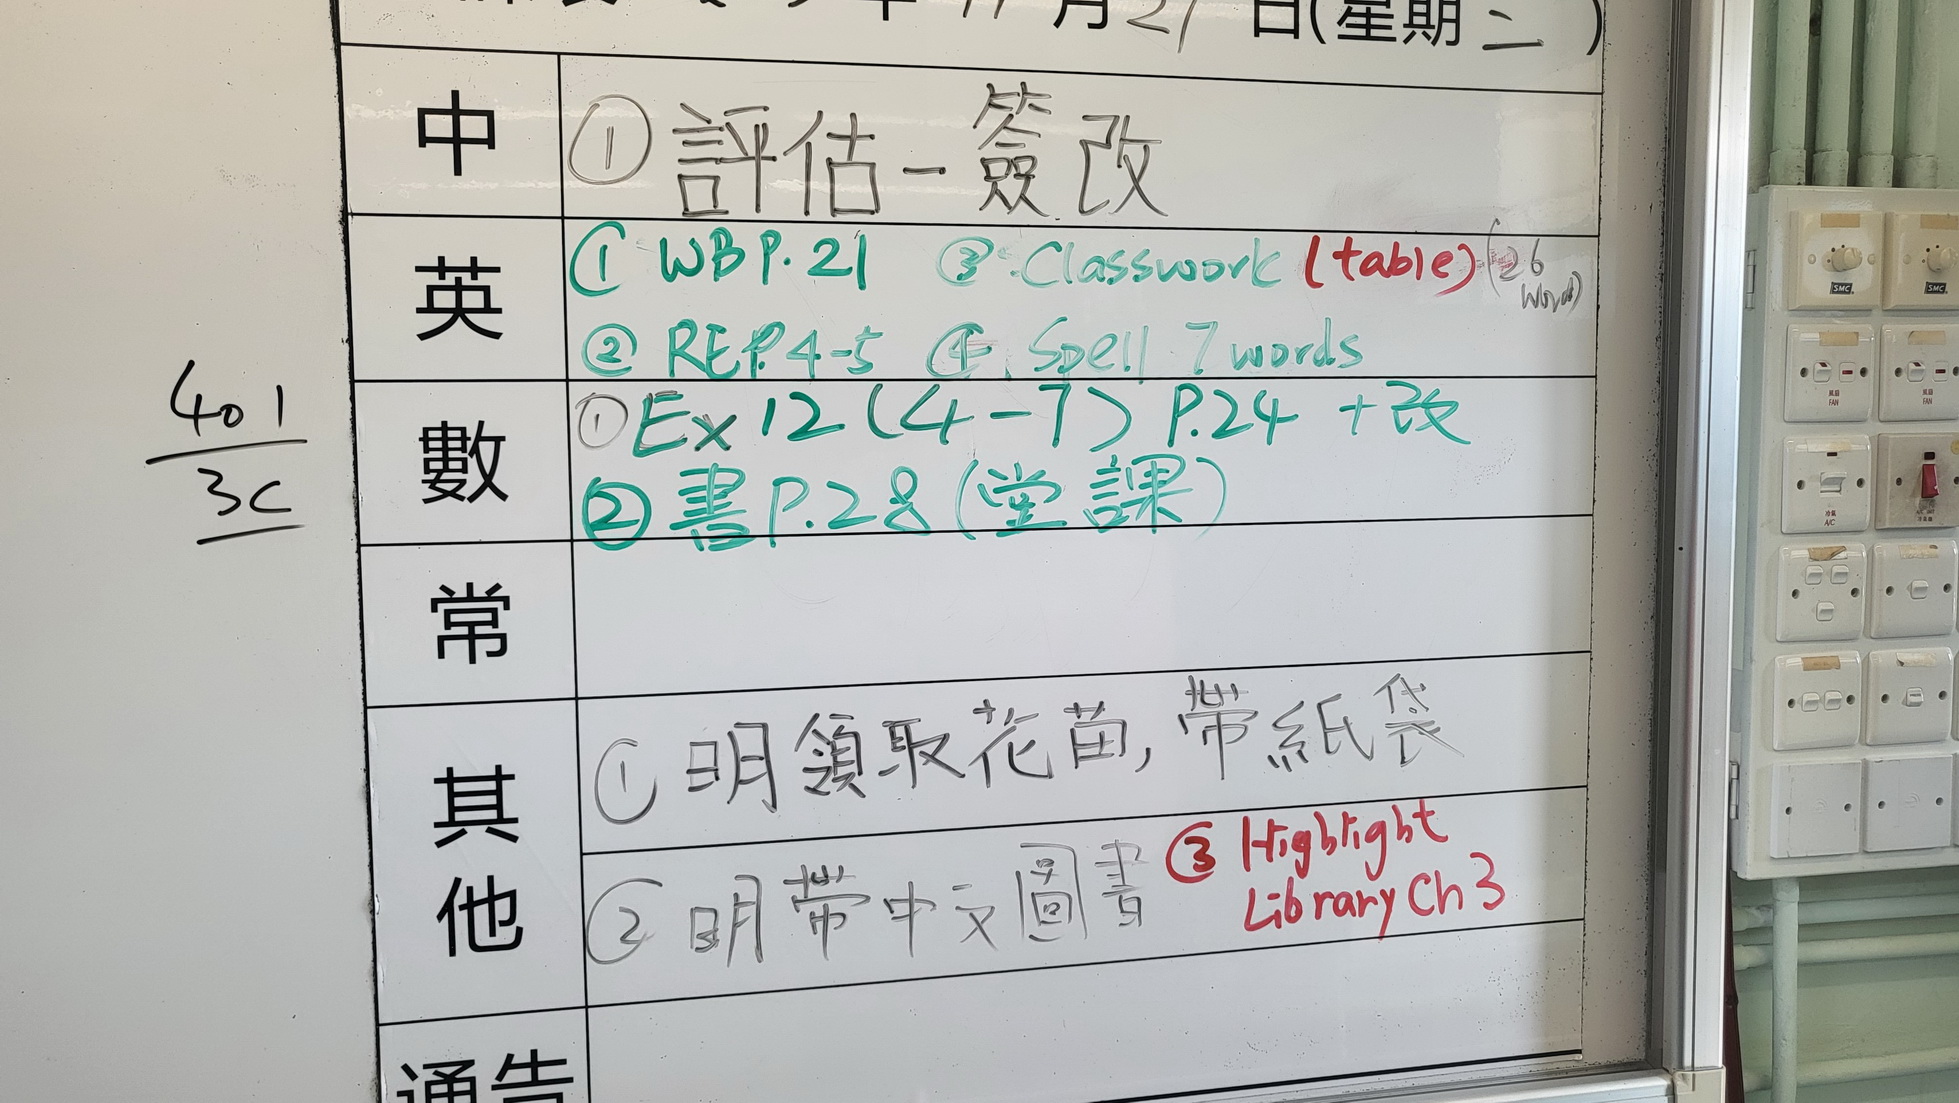 年 11 月 21 日(星期二)
中
① 評估-簽改
英
① WB P.21 ③ Classwork (table) (26 words)
② RE P.4-5 ④ Spell 7 words
數
① Ex 12 (4-7) P.24 + 改
② 書 P.28 (堂課)
常
其他
① 明領取花苗, 帶紙袋
② 明帶中文圖書 ③ Highlight
Library Ch 3
通告
401
3C
SMC
SMC
風扇
FAN
風扇
FAN
冷氣
A/C